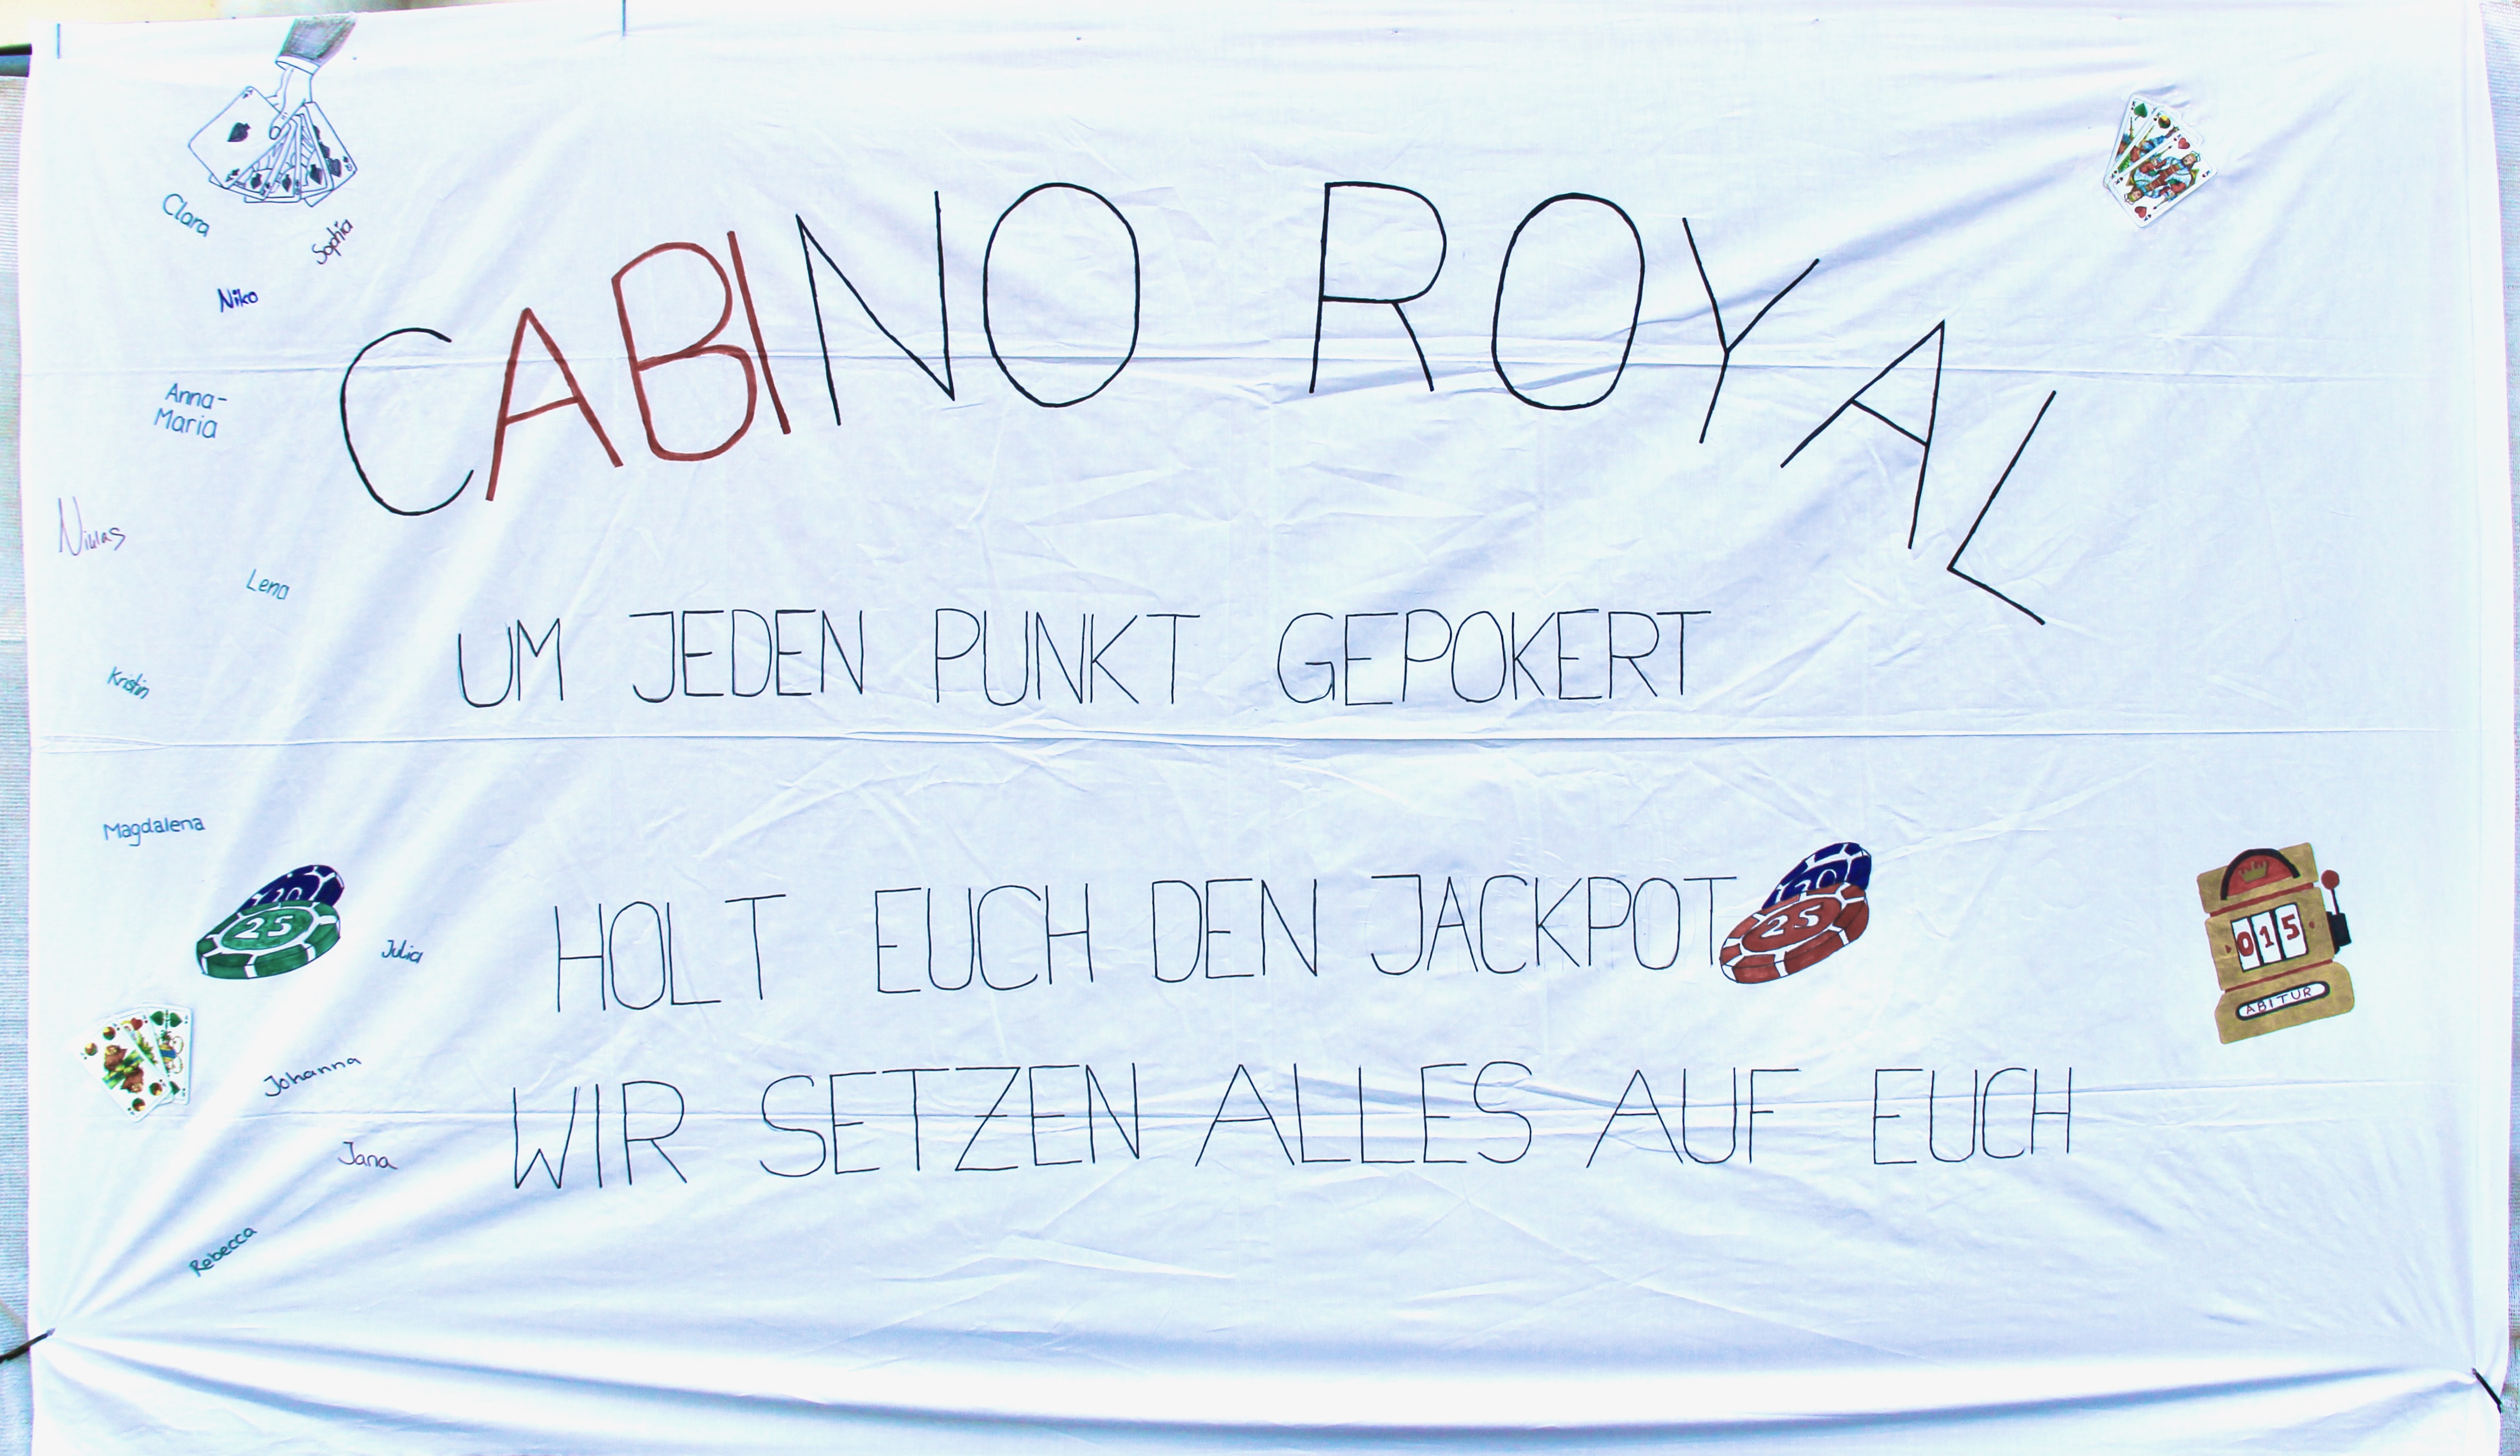 Clara
Sophia
Niko
CABINO ROYAL
Anna-
Maria
Niklas
Lena
UM JEDEN PUNKT GEPOKERT
Kristin
Magdalena
20
25
Julia
HOLT EUCH DEN JACKPOT
20
25
015
ABITUR
Johanna
WIR SETZEN ALLES AUF EUCH
Jana
Rebecca